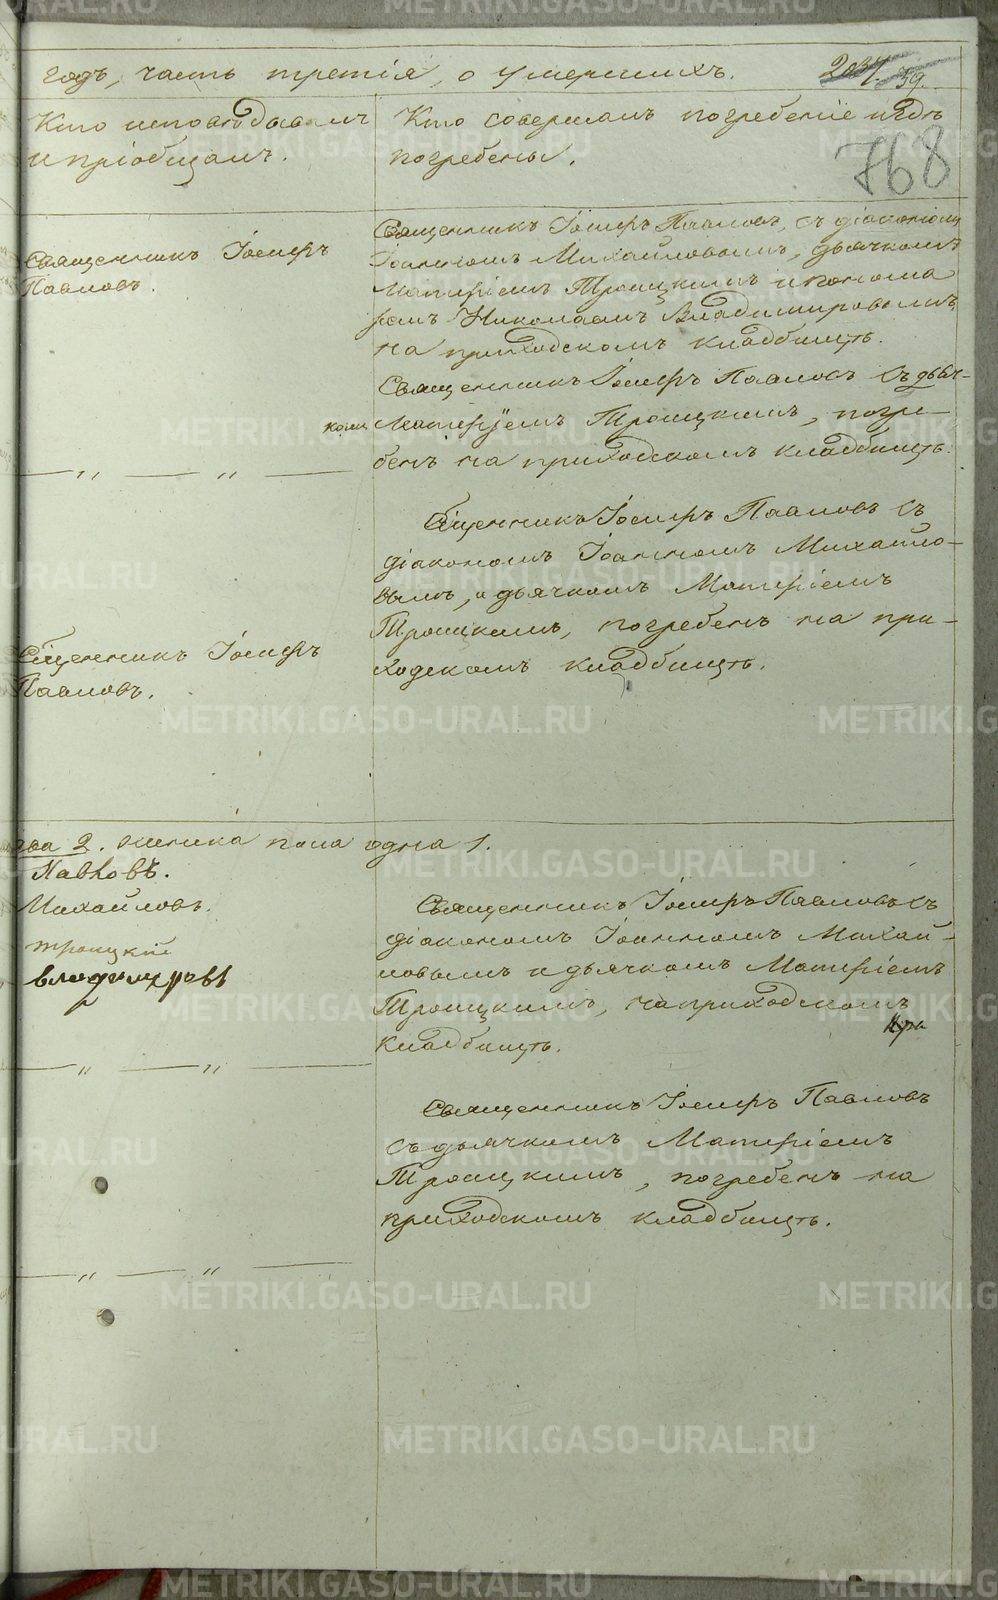 годъ, часть третія, о умершихъ.
39.
768
Кто исповѣдывалъ
и пріобщалъ.
Кто совершалъ погребеніе и гдѣ
погребены.
Священникъ Іосифъ
Павловъ.
Священникъ Іосифъ Павловъ, съ діакономъ
Іоанномъ Михайловымъ, дьячкомъ
Матфіемъ Троицкимъ и пономаремъ
Николаемъ Владимировымъ,
на приходскомъ кладбищѣ.
Священникъ Іосифъ Павловъ съ дьяч-
комъ Матфіемъ Троицкимъ, погре-
бенъ на приходскомъ кладбищѣ.
— „ — „ —
Сщенникъ Іосифъ Павловъ съ
діакономъ Іоанномъ Михайло-
вымъ, и дьячкомъ Матфіемъ
Троицкимъ, погребенъ на при-
ходскомъ кладбищѣ.
Сщенникъ Іосифъ
Павловъ.
два 2. женска пола одна 1.
Павловъ.
Михайловъ.
Троицкій
Владимировъ
Священникъ Іосифъ Павловъ съ
діакономъ Іоанномъ Михай-
ловымъ и дьячкомъ Матфіемъ
Троицкимъ, на приходскомъ
кладбищѣ.
— „ — „ —
Священникъ Іосифъ Павловъ
съ дьячкомъ Матфіемъ
Троицкимъ, погребенъ на
приходскомъ кладбищѣ.
— „ — „ —
METRIKI.GASO-URAL.RU